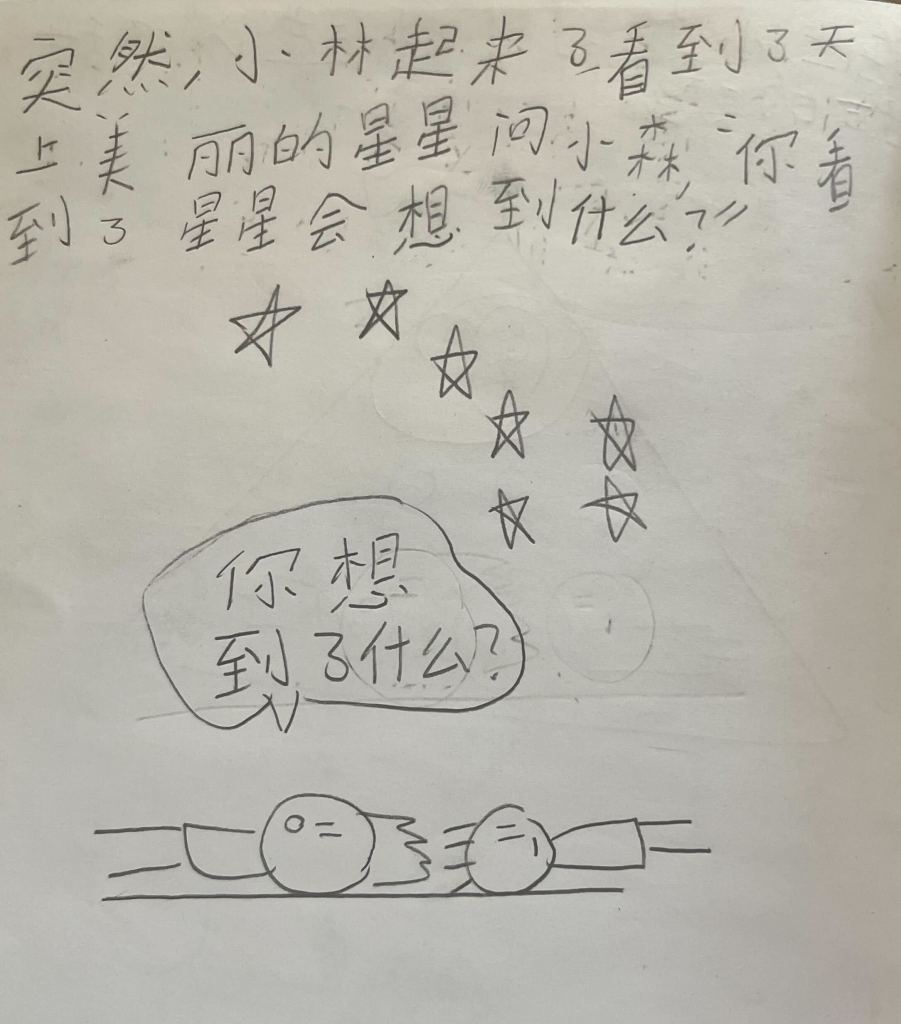 突然,小林起来了看到了天
上美丽的星星问小森,“你看
到了星星会想到什么?”
你想
到了什么?